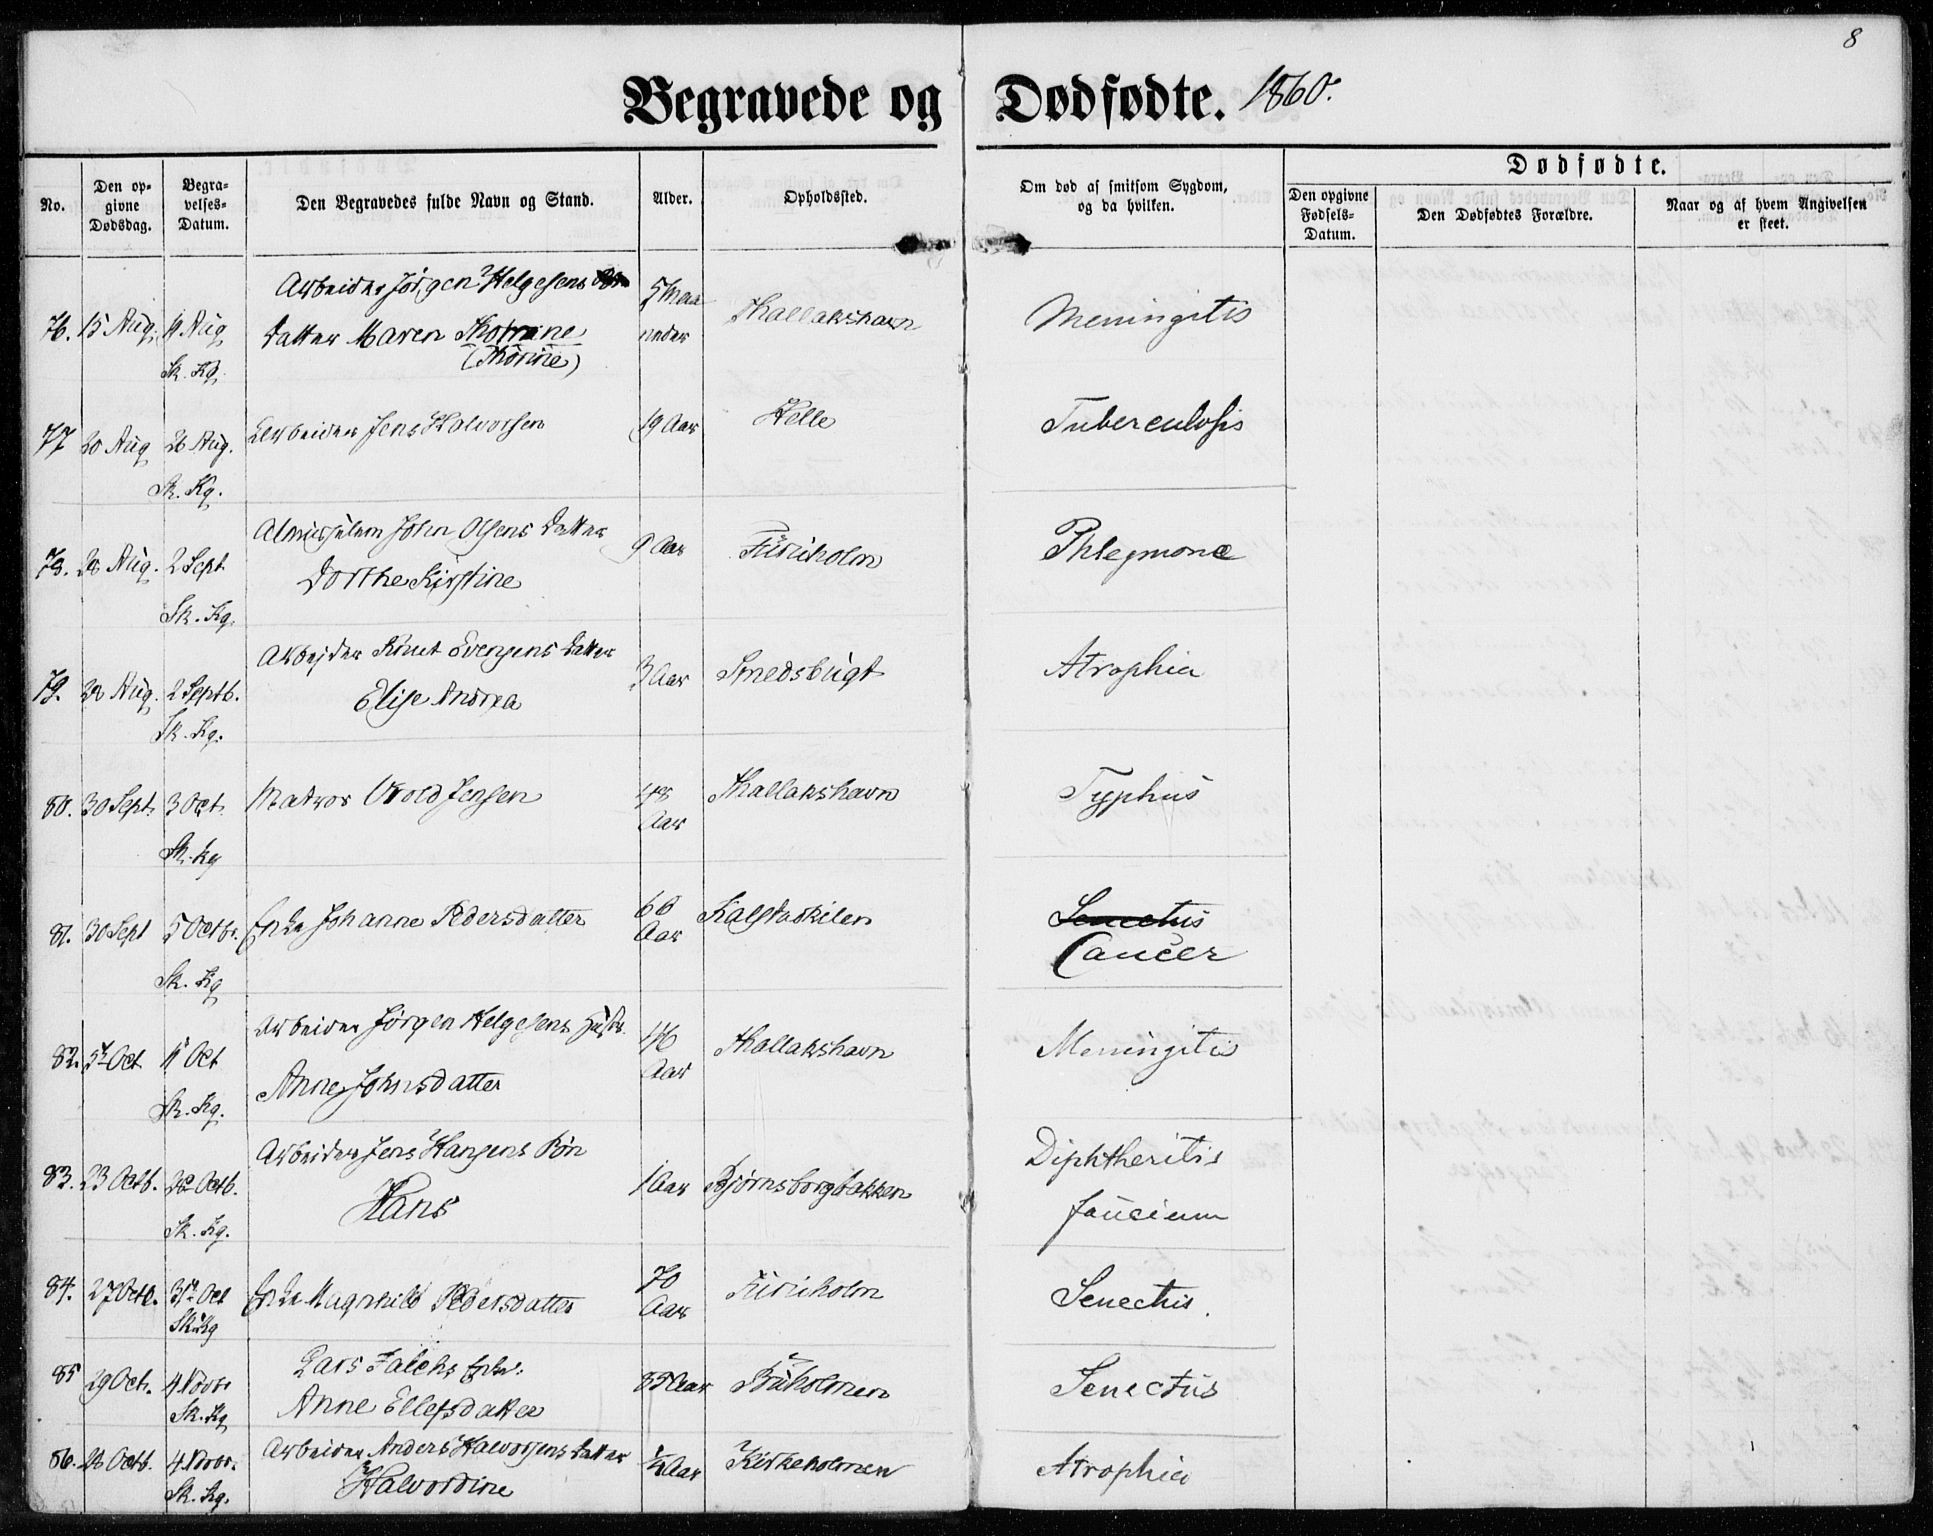 8
Begravede og Dødfødte. 1860.
No.
Den op-
givne
Dødsdag.
Begra-
velses-
Datum.
Den Begravedes fulde Navn og Stand.
Alder.
Opholdssted.
Om død af smitsom Sygdom,
og da hvilken.
Dødfødte.
Den opgivne
Fødsels-
Datum.
Den Dødfødtes Forældre.
Naar og af hvem Angivelsen
er skeet.
Arbeider Jörgen Helgesens
76. 15 Aug. Aug Datter Maren 5 Maa
neder Thallakshavn Meningitis
Sk. Kg. (Thorine)
77 20 Aug 26 Aug. Arbeider Jens Halvorsen 19 Aar Helle Tuberculosis
Sk. Kg.
78. 28 Aug. 2 Sept Almuslem John Olsens Datter 9 Aar Furuholm Phlegmone
Dorthe Kirstine
Sk. Kg.
79. 28 Aug. 2 Septb. Arbejder Knut Evensens Datter 3 Aar Smedsbugt Atrophia
Elise Andrea
Sk. Kg.
80. 30 Sept. 3 Oct. Matros Jensen 48
Aar Thallakshavn Typhus
Sk. kg
81. 30 Sept 5 Octbr. Enke Johanne Pedersdatter 66
Aar Kalstadkilen Senectus
Cancer
Sk. Kg
82. 5t Oct 11 Oct Arbeider Jörgen Helgesens Hustr. 46
Aar Thallakshavn Meningitis
Anne Johnsdatter
Sk. Kg.
83. 23 Octb. 28 Octb. Arbeider Jens Hansens Sön 1 Aar Bjørnsborgbakken Diphtheritis
Hans faucium
Sk. Kg.
84. 27 Octb. 31t Oct Enke Magnhild Pedersdatter 70
Aar Furuholm Senectus.
Sk. Kg
85 29 Oct. 4 Novbr Lars Falchs Enke: 85 Aar Buholmen Senectus
Sk. Kg Anne Ellefsdatter
86. 28 Octb. 4 Novbr. Arbeider Anders Halvorsens Datter ½ Aar Kirkeholmen Atrophia
Sk. Kg. Halvordine